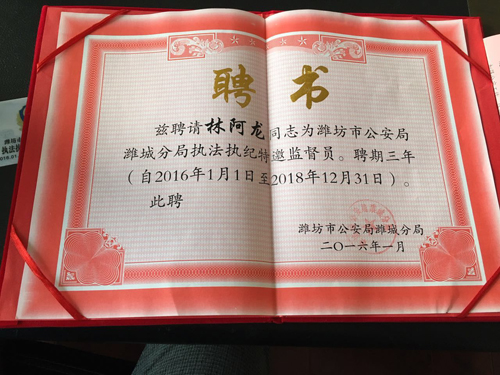 聘书
兹聘请林阿龙同志为潍坊市公安局
潍城分局执法执纪特邀监督员。聘期三年
（自2016年1月1日至2018年12月31日）。
此聘
潍坊市公安局潍城分局
二〇一六年一月